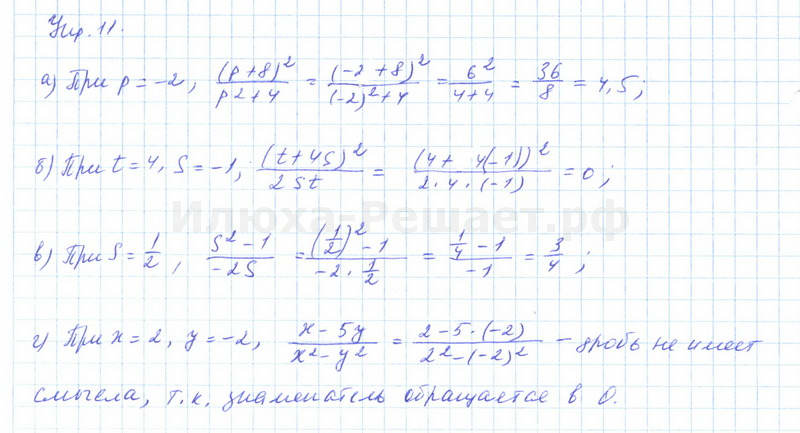 Упр. 11.
а) При p = -2, (p+8)²/p2+4 = (-2+8)²/(-2)²+4 = 6²/4+4 = 36/8 = 4,5;
б) При t = 4, S = -1, (t+4S)²/2St = (4+ 4(-1))²/2·4·(-1) = 0;
Илюха-Решает.рф
в) При S = 1/2, S²-1/-2S = (1/2)²-1/-2·1/2 = 1/4-1/-1 = 3/4;
г) При x = 2, y = -2, x-5y/x²-y² = 2-5·(-2)/2²-(-2)² – дробь не имеет
смысла, т.к. знаменатель обращается в 0.